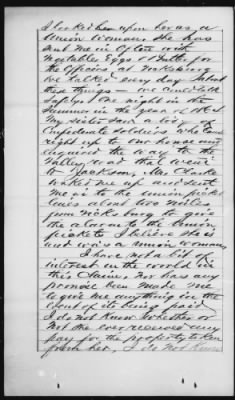 I looked her upon her as a
Union woman. He has
sent me in often with
vegetables Eggs & Butter for
the Officers at Vicksburg
we talked every day about
these things — we could talk
safely. One night in the
Summer in the year
My sister saw a body of
Confederate Soldiers who came
right up to our house and
enquired the way to the
Valley road that went
to Jackson, Mrs Clarke
waked me up and sent
me in to the union picket
lines about two miles
from Vicksburg to give
the alarm to the Union
pickets I did this
and was a Union woman
I have not a bit of
interest in the world in
this Claim, nor has any
promise been made me
to give me anything in the
event of its being paid,
I do not know whether or
not she ever received any
pay for the property taken
from her, I do not know